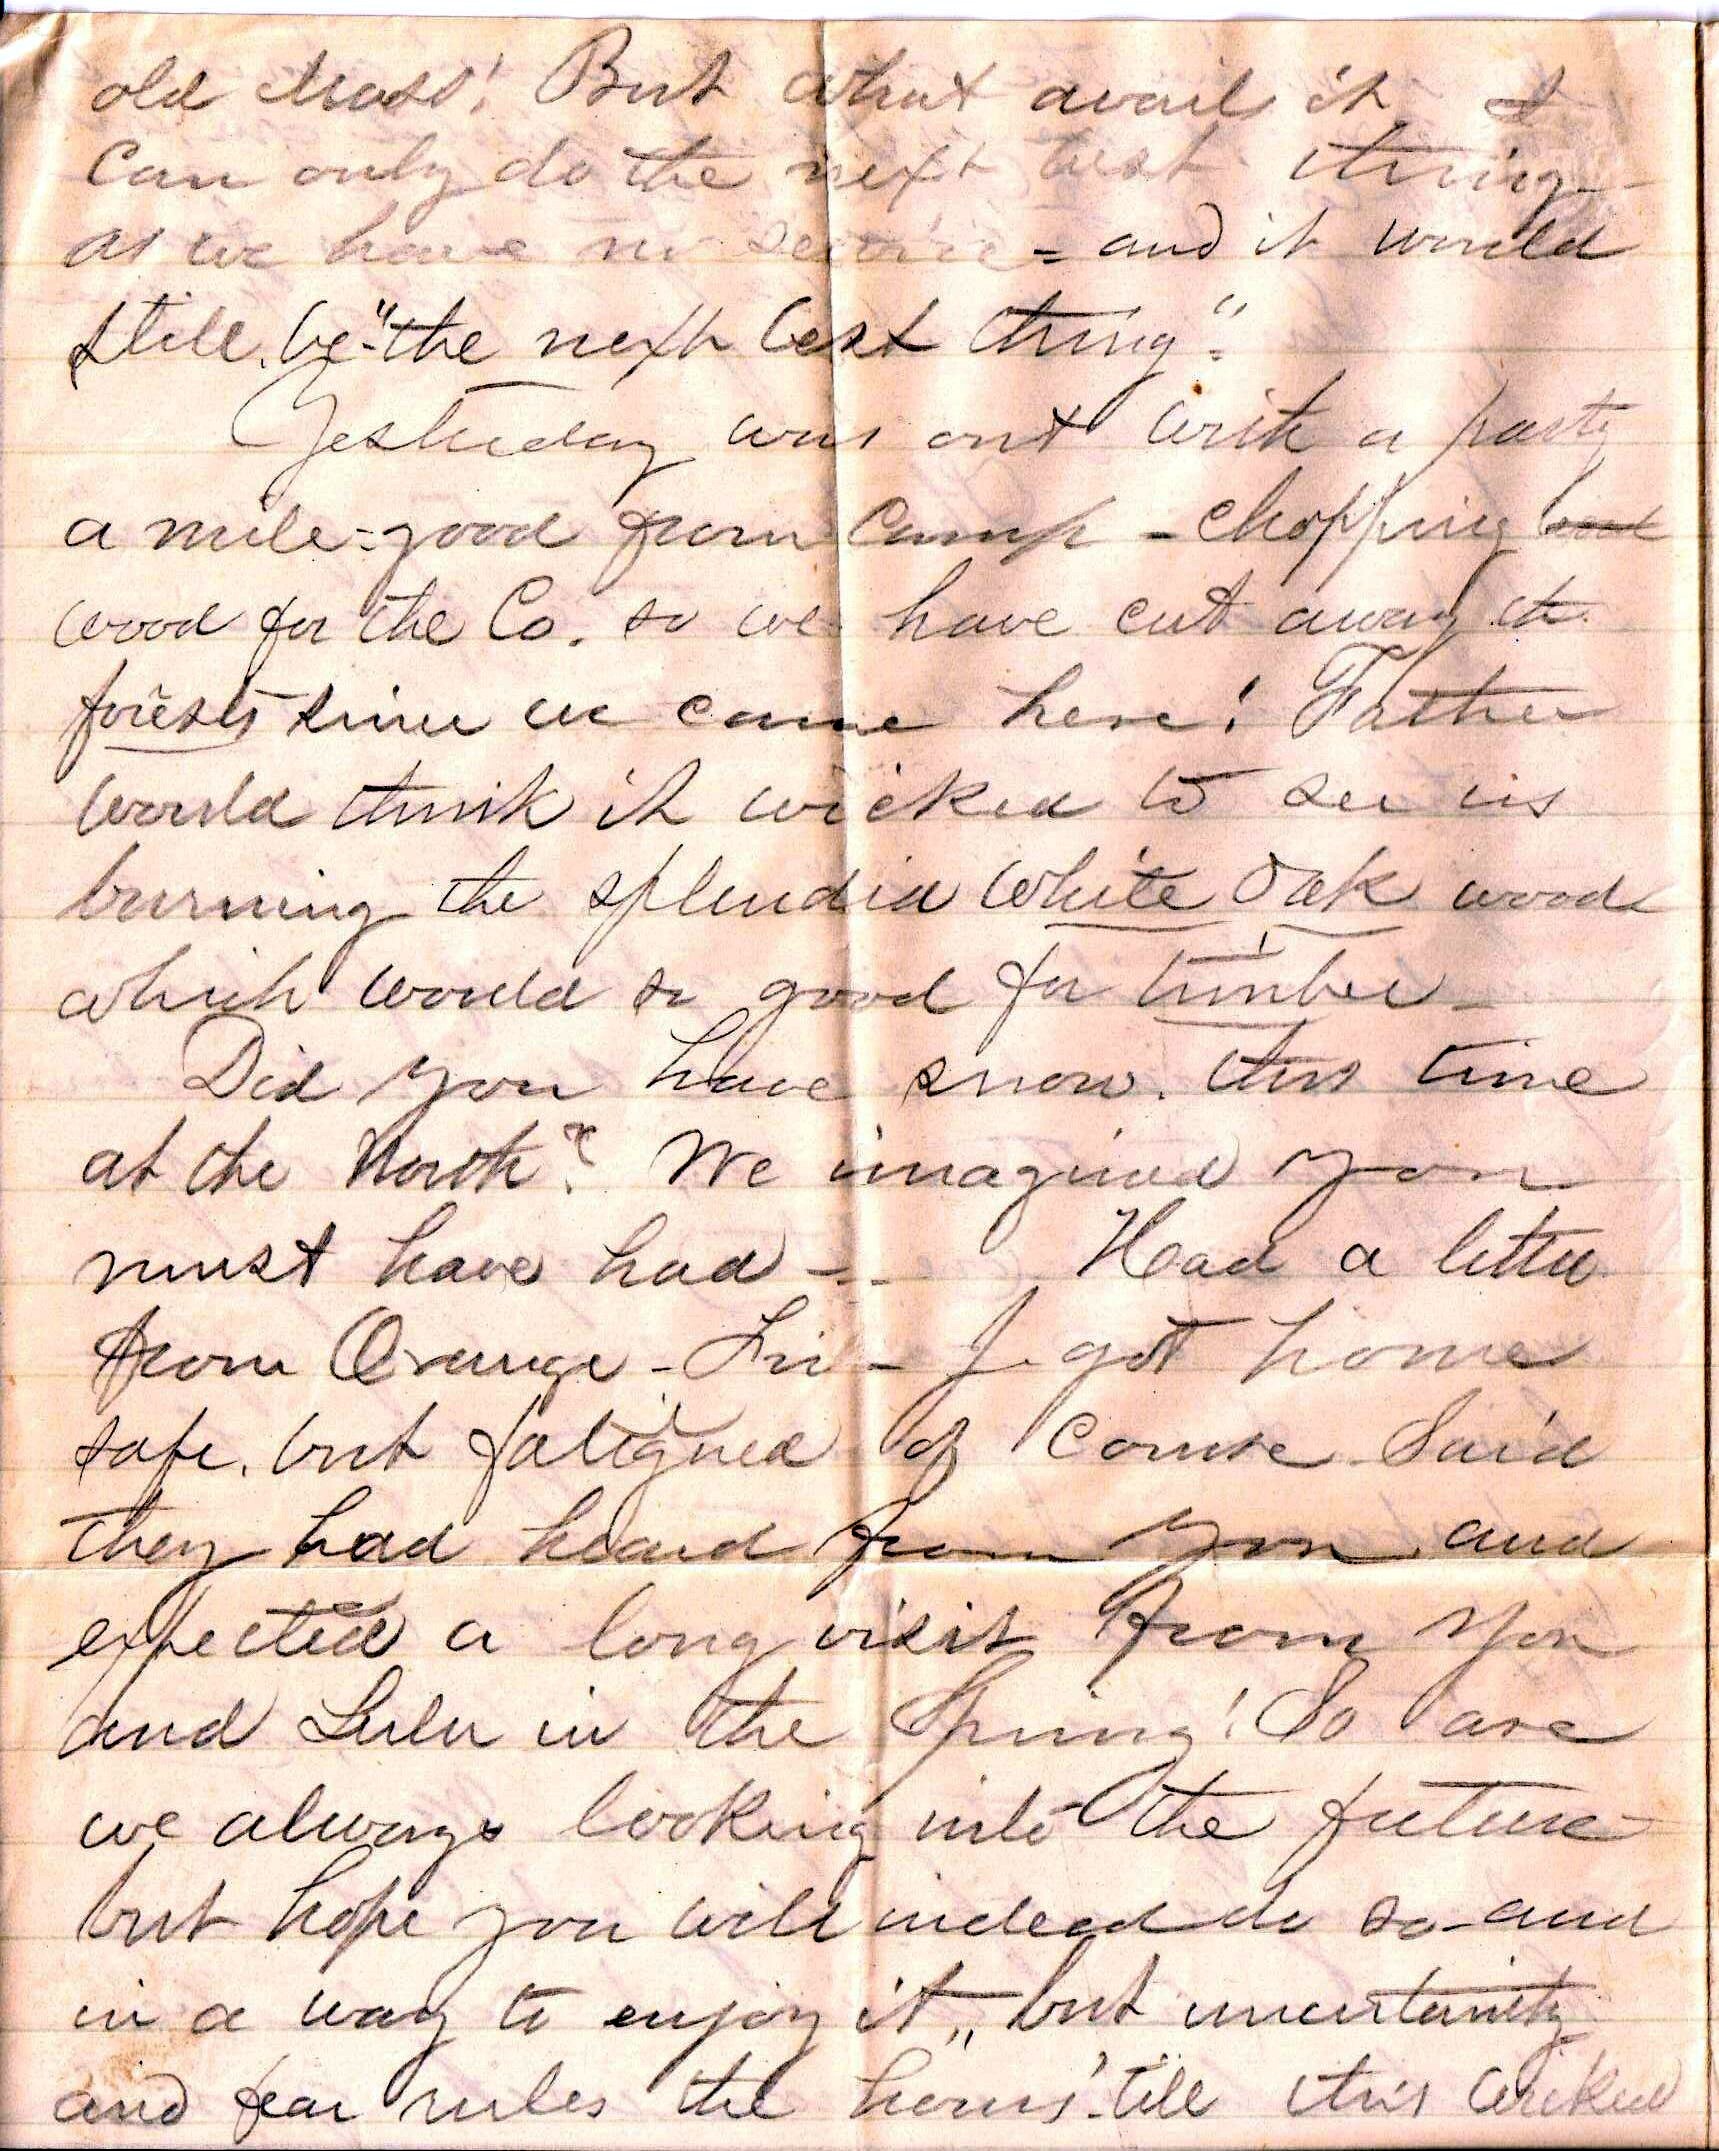 old Mass! But what avail it I
can only do the next best thing -
as we have no service - and it would
still. be "the next best thing".
Yesterday was out with a party
a mile - good from camp - chopping
wood for the Co. so we have cut away the
forests since we came here! Father
would think it wicked to see us
burning the splendid white oak wood
which would so good for timber -
Did you have snow. this time
at the North? We imagined you
must have had - Had a letter
from Orange - Fri - J. got home
safe. but fatigued of course Said
they had heard from you and
expected a long visit from you
and Lulu in the Spring! So are
we always looking into the future -
but hope you will indeed do so - and
in a way to enjoy it, but uncertainity
and fear rules the hours' till this wicked